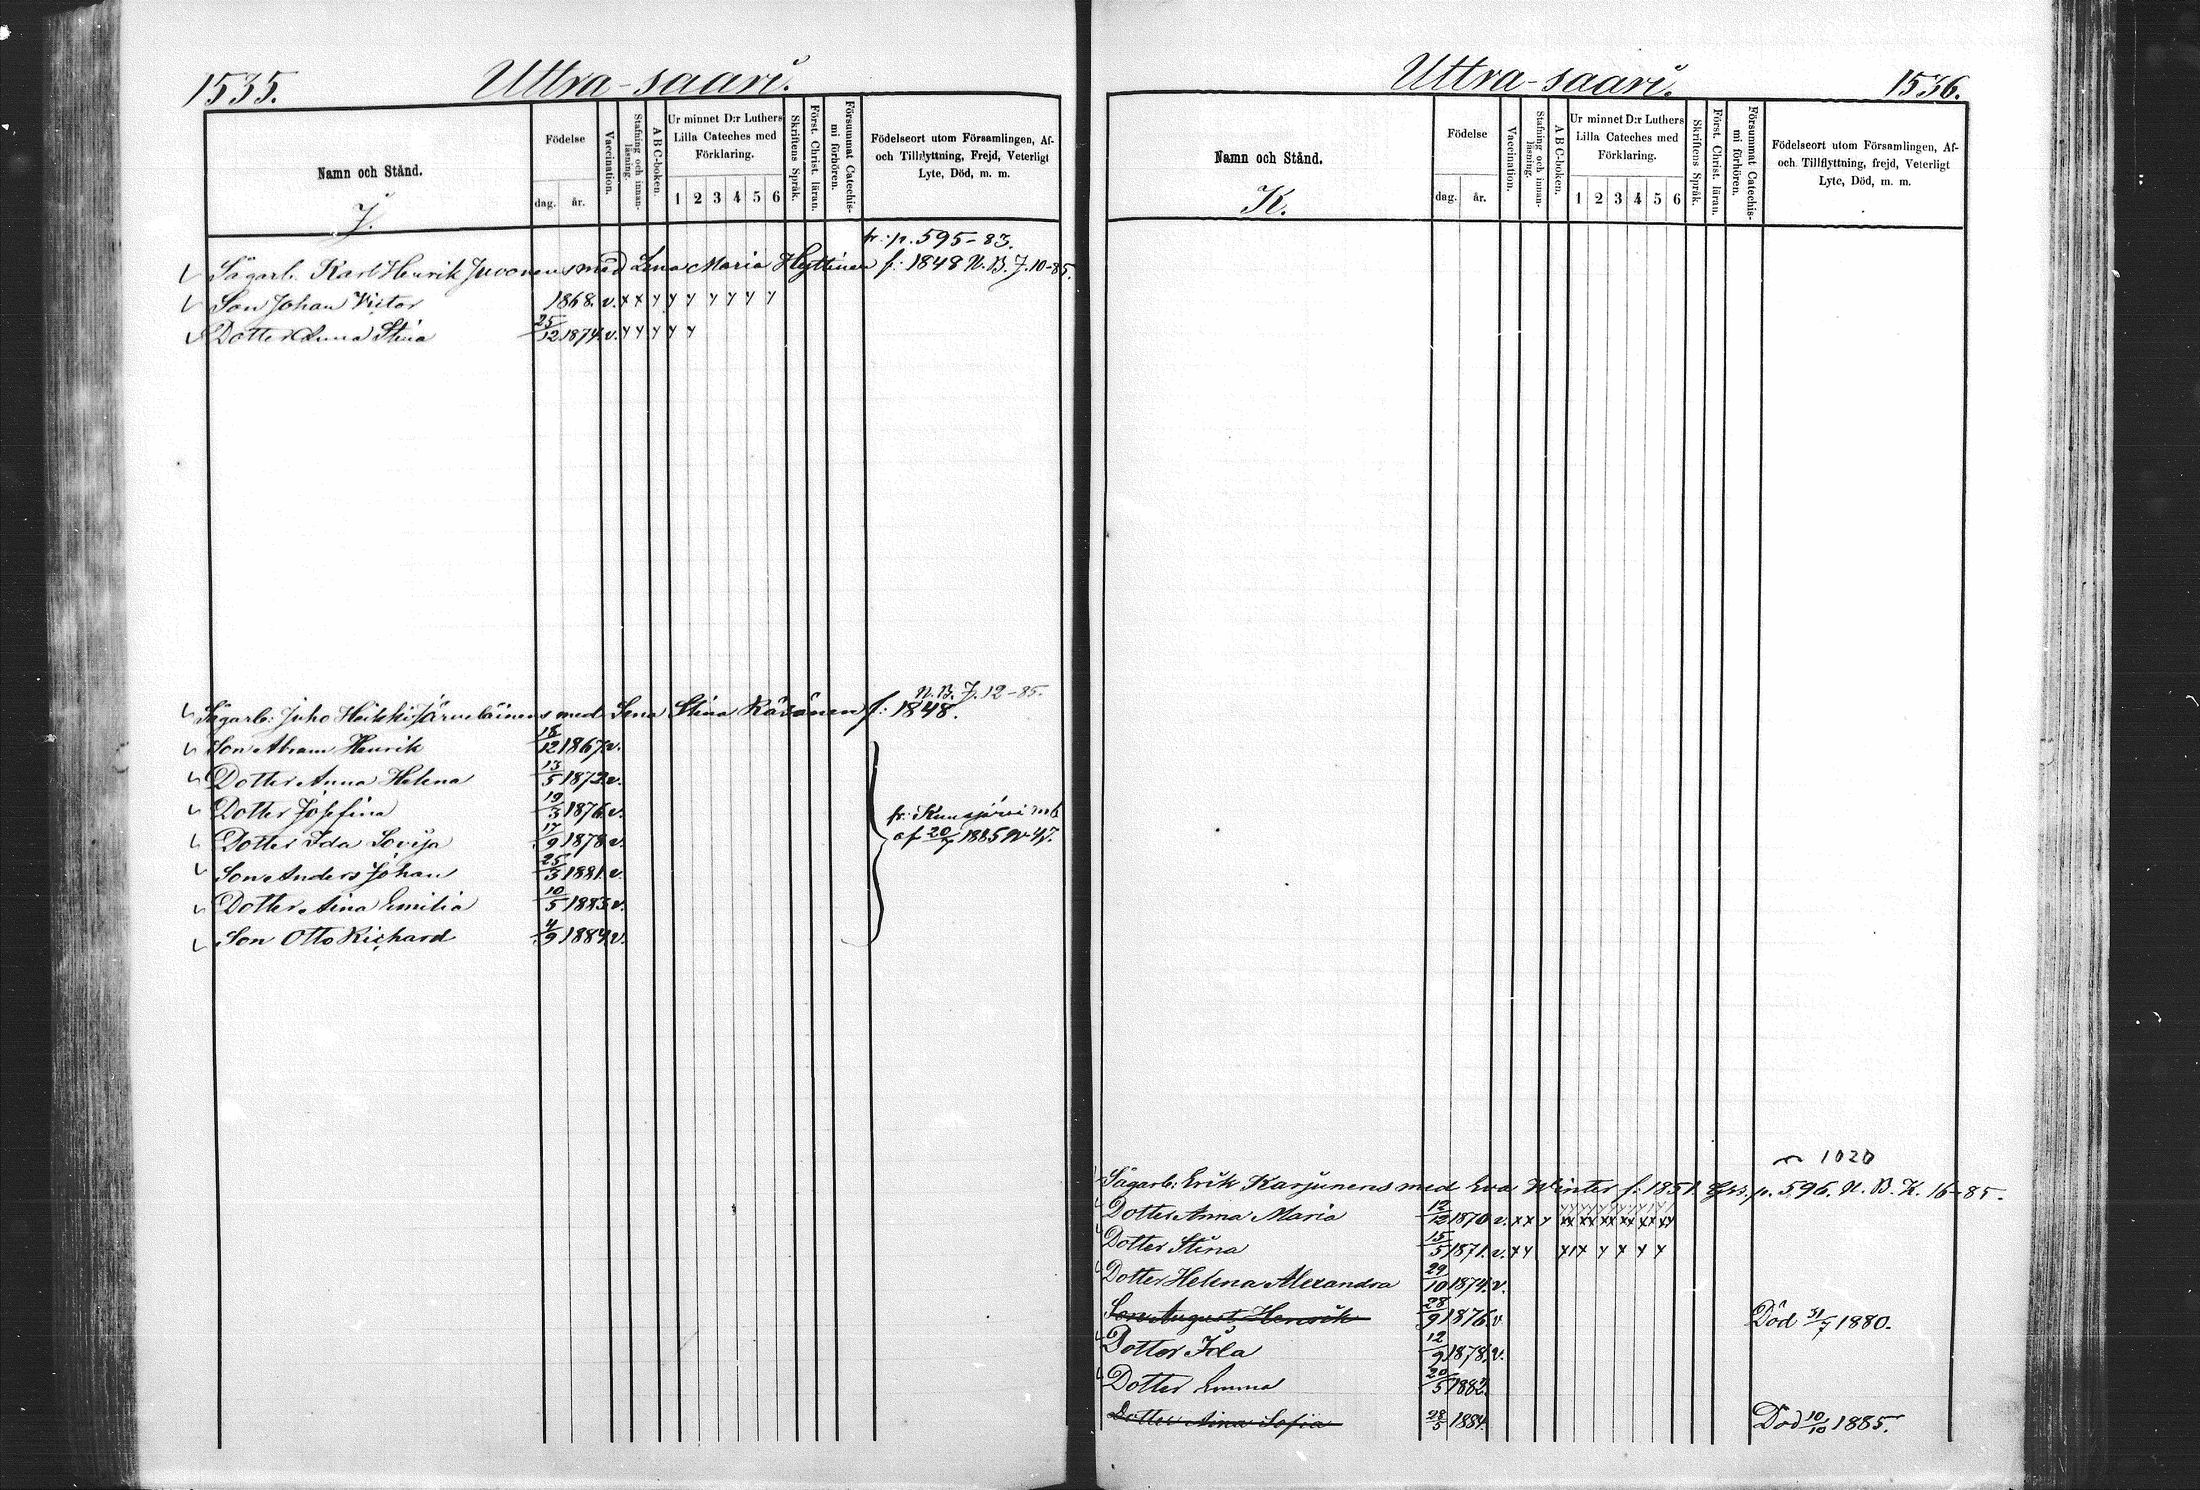 1535.
Uttra-saari.
Namn och Stånd.
J.
Födelse
dag. år.
Vaccination.
Stafning och innan-
läsning.
A B C-boken.
Ur minnet D:r Luthers
Lilla Cateches med
Förklaring.
1 2 3 4 5 6
Skriftens Språk.
Först. Christ. läran.
Försummat Catechis-
mi förhören.
Födelseort utom Församlingen, Af-
och Tillflyttning, Frejd, Veterligt
Lyte, Död, m. m.
fr. p. 595-83.
Sågarb. Karl Henrik Juvonens med Lena Maria Hyttinen f: 1848 N. B. J. 10-85.
Son Johan Victor 1868. v. x x y y y y y y y
Dotter Anna Stina 25/12 1874. v. y y y y y
N. B. J. 12-85.
Sågarb: Juho Heikki Järveläinens med Lena Stina Räsänen f: 1848.
Son Abram Henrik 18/12 1867. v.
Dotter Anna Helena 13/5 1873. v.
Dotter Josefina 19/3 1876. v.
Dotter Ida Sovija 17/9 1878 v.
Son Anders Johan 25/3 1881. v.
Dotter Aina Emilia 10/5 1883. v.
Son Otto Richard 4/9 1884. v.
fr: Kuusjärvi
af 20/7 1885 No 47.
Uttra-saari.
1536.
Namn och Stånd.
K.
Födelse
dag. år.
Vaccination.
Stafning och innan-
läsning.
A B C-boken.
Ur minnet D:r Luthers
Lilla Cateches med
Förklaring.
1 2 3 4 5 6
Skriftens Språk.
Först. Christ. läran.
Försummat Catechis-
mi förhören.
Födelseort utom Församlingen, Af-
och Tillflyttning, frejd, Veterligt
Lyte, Död, m. m.
1020
Sågarb: Erik Karjunens med Eva Winter f: 1851. p. 596. N. B. K. 16-85.
Dotter Anna Maria 12/12 1870 v. x x y xx xx xx xx xx xx
Dotter Stina 15/5 1871. v. x y y x x y y y y
Dotter Helena Alexandra 29/10 1874. v.
Son August Henrik 28/9 1876. v Död 31/7 1880.
Dotter Ida 12/9 1878. v.
Dotter Emma 20/5 1882.
Dotter Aina Sofia 28/5 1884. Död 10/10 1885.